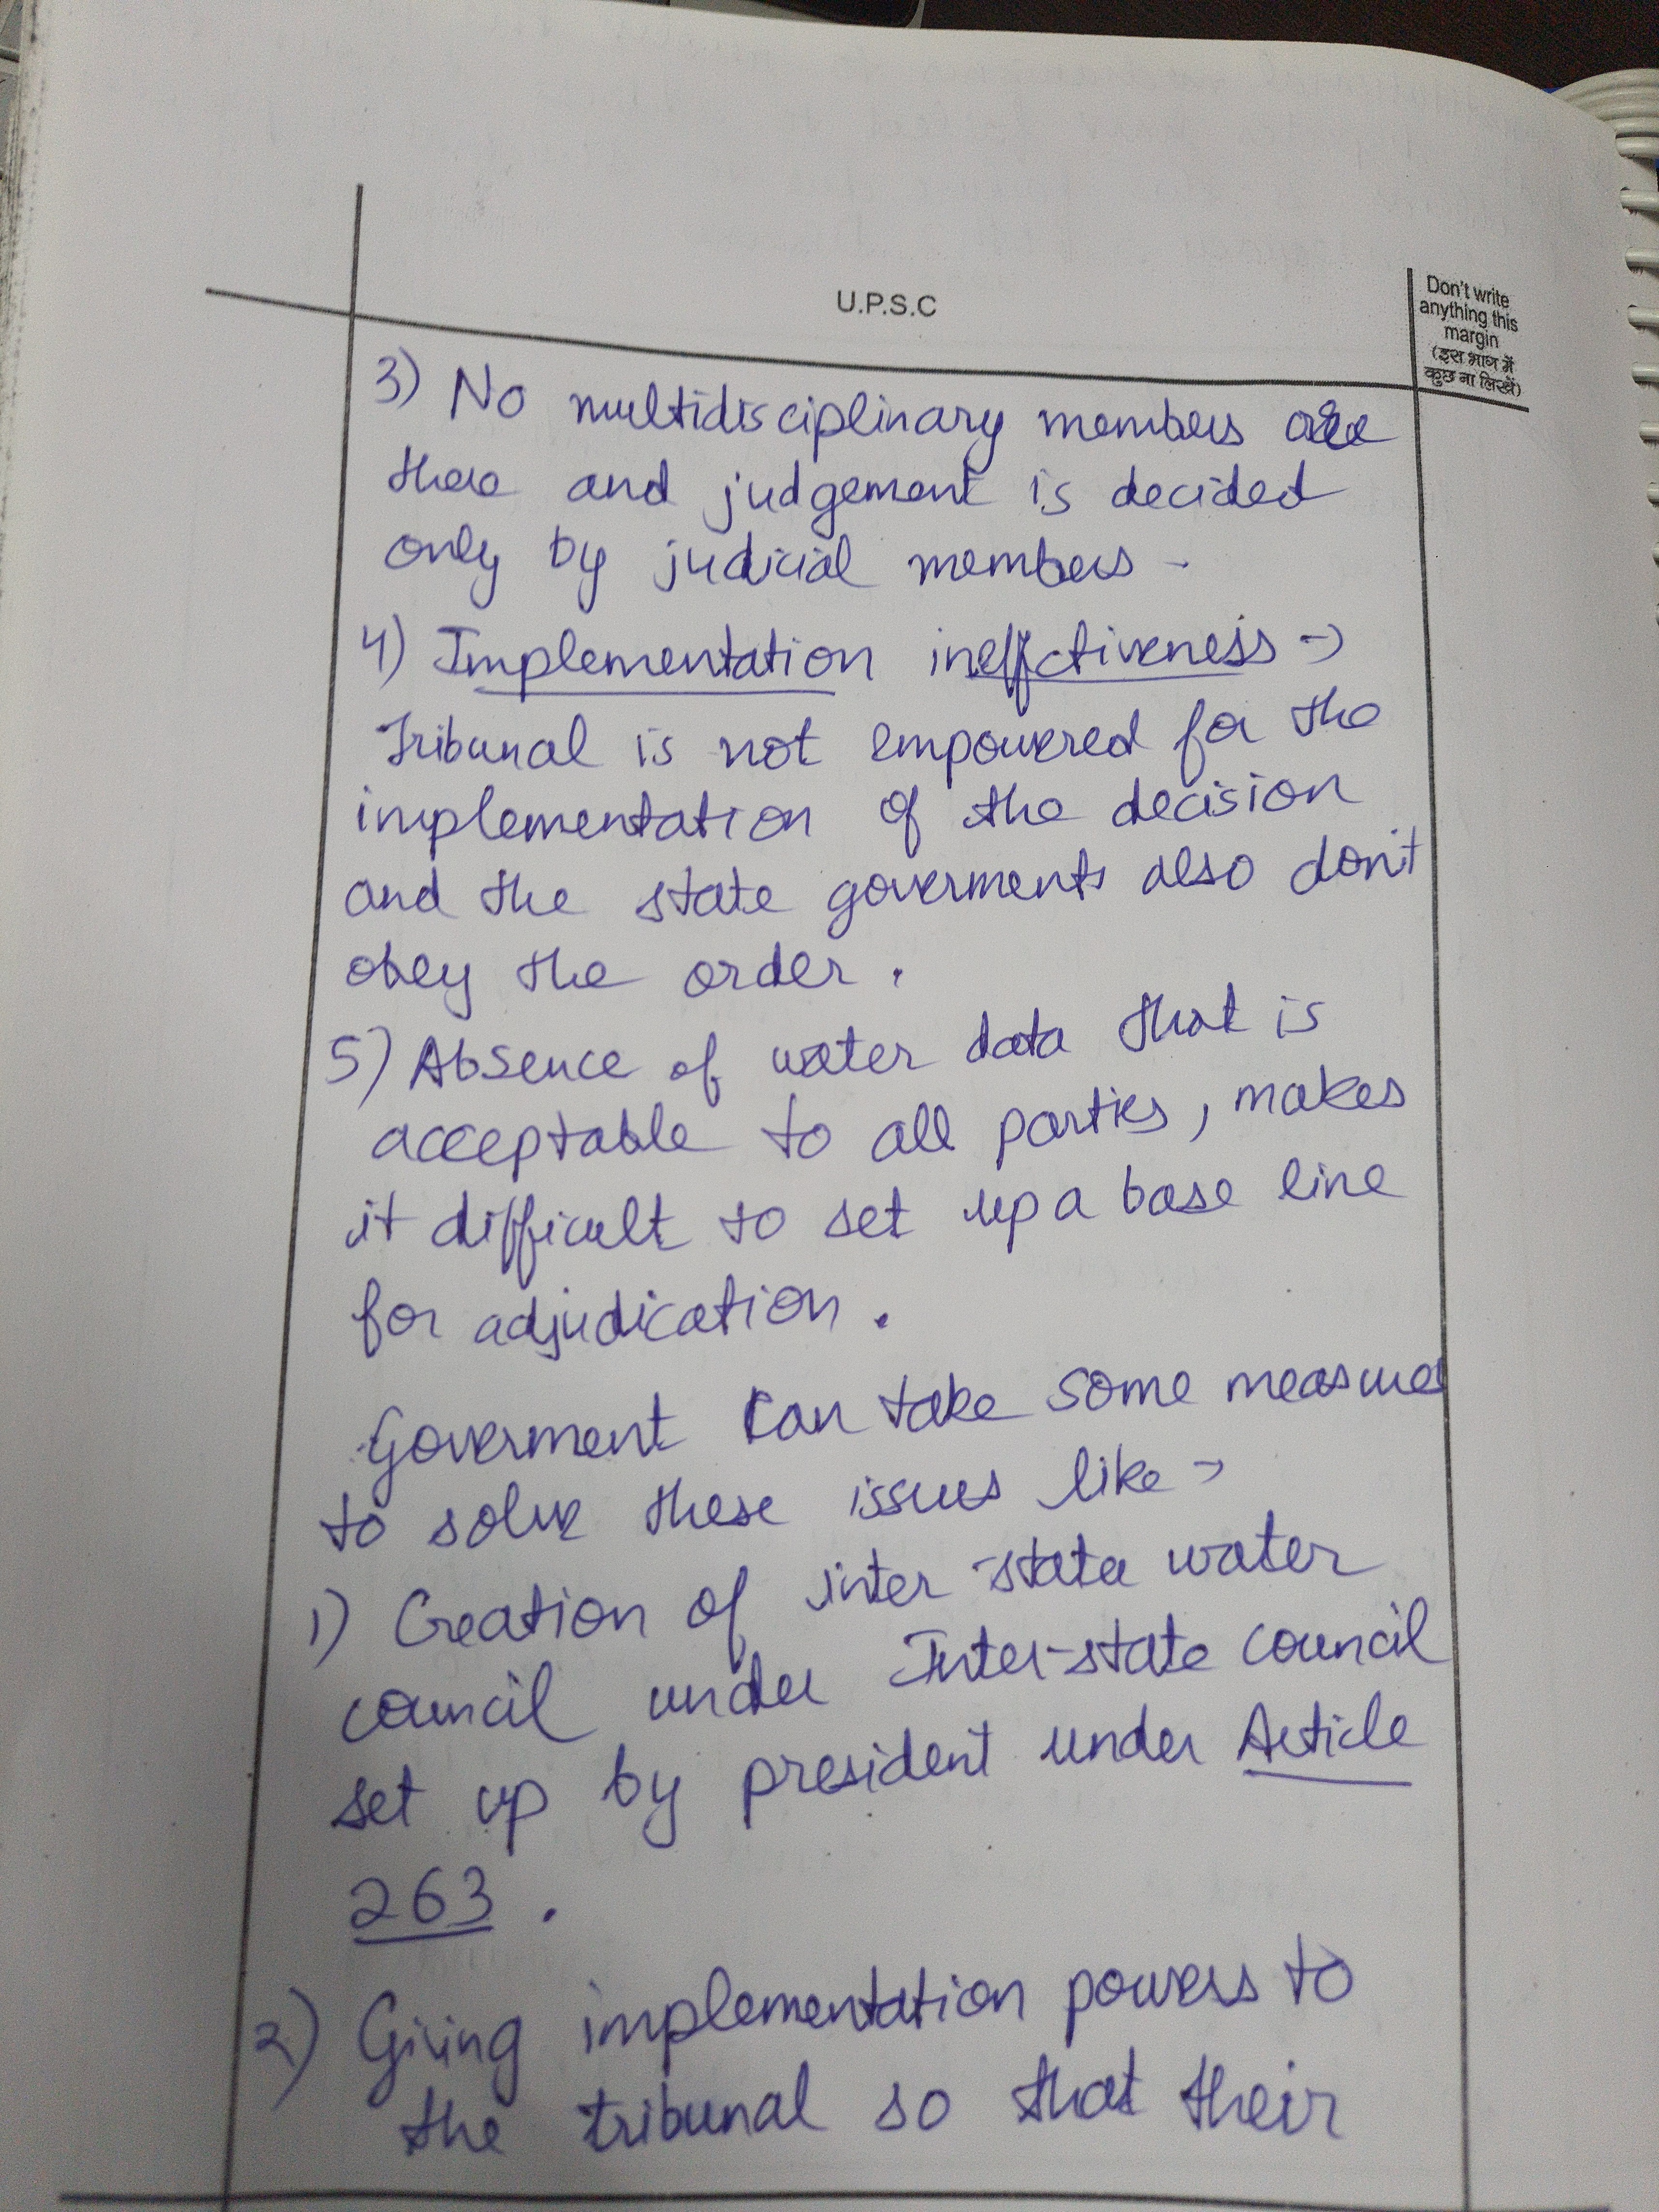 U.P.S.C
Don't write
anything this
margin
(इस भाग में
कुछ ना लिखें)
3) No multidisciplinary members are
there and judgement is decided
only by judicial members -
4) Implementation ineffctiveness →
Tribunal is not empowered for the
implementation of the decision
and the state goverments also don't
obey the order.
5) Absence of water data that is
acceptable to all parties, makes
it difficult to set up a base line
for adjudication.
Goverment can take some measures
to solve these issues like →
1) Creation of inter-state water
council under Inter-state council
set up by president under Article
263.
2) Giving implementation powers to
the tribunal so that their